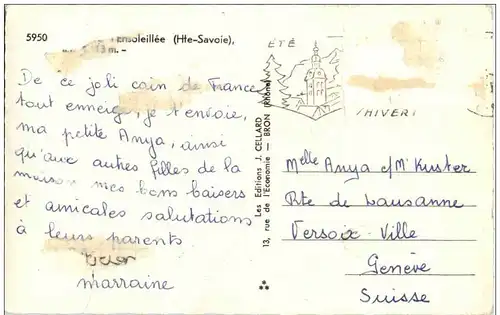 5950
l'Ensoleillée (Hte-Savoie),
m. -
De ce joli coin de France
tout enneigé, je t'envoie,
ma petite Anya, ainsi
qu'aux autres filles de la
maison mes bons baisers
et amicales salutations
à leurs parents
marraine
Les Editions J. CELLARD
13, rue de l'Economie — BRON (Rhône)
ÉTÉ
HIVER
Melle Anya c/Mr Kuster
Rte de Lausanne
Versoix-Ville
Genève
Suisse